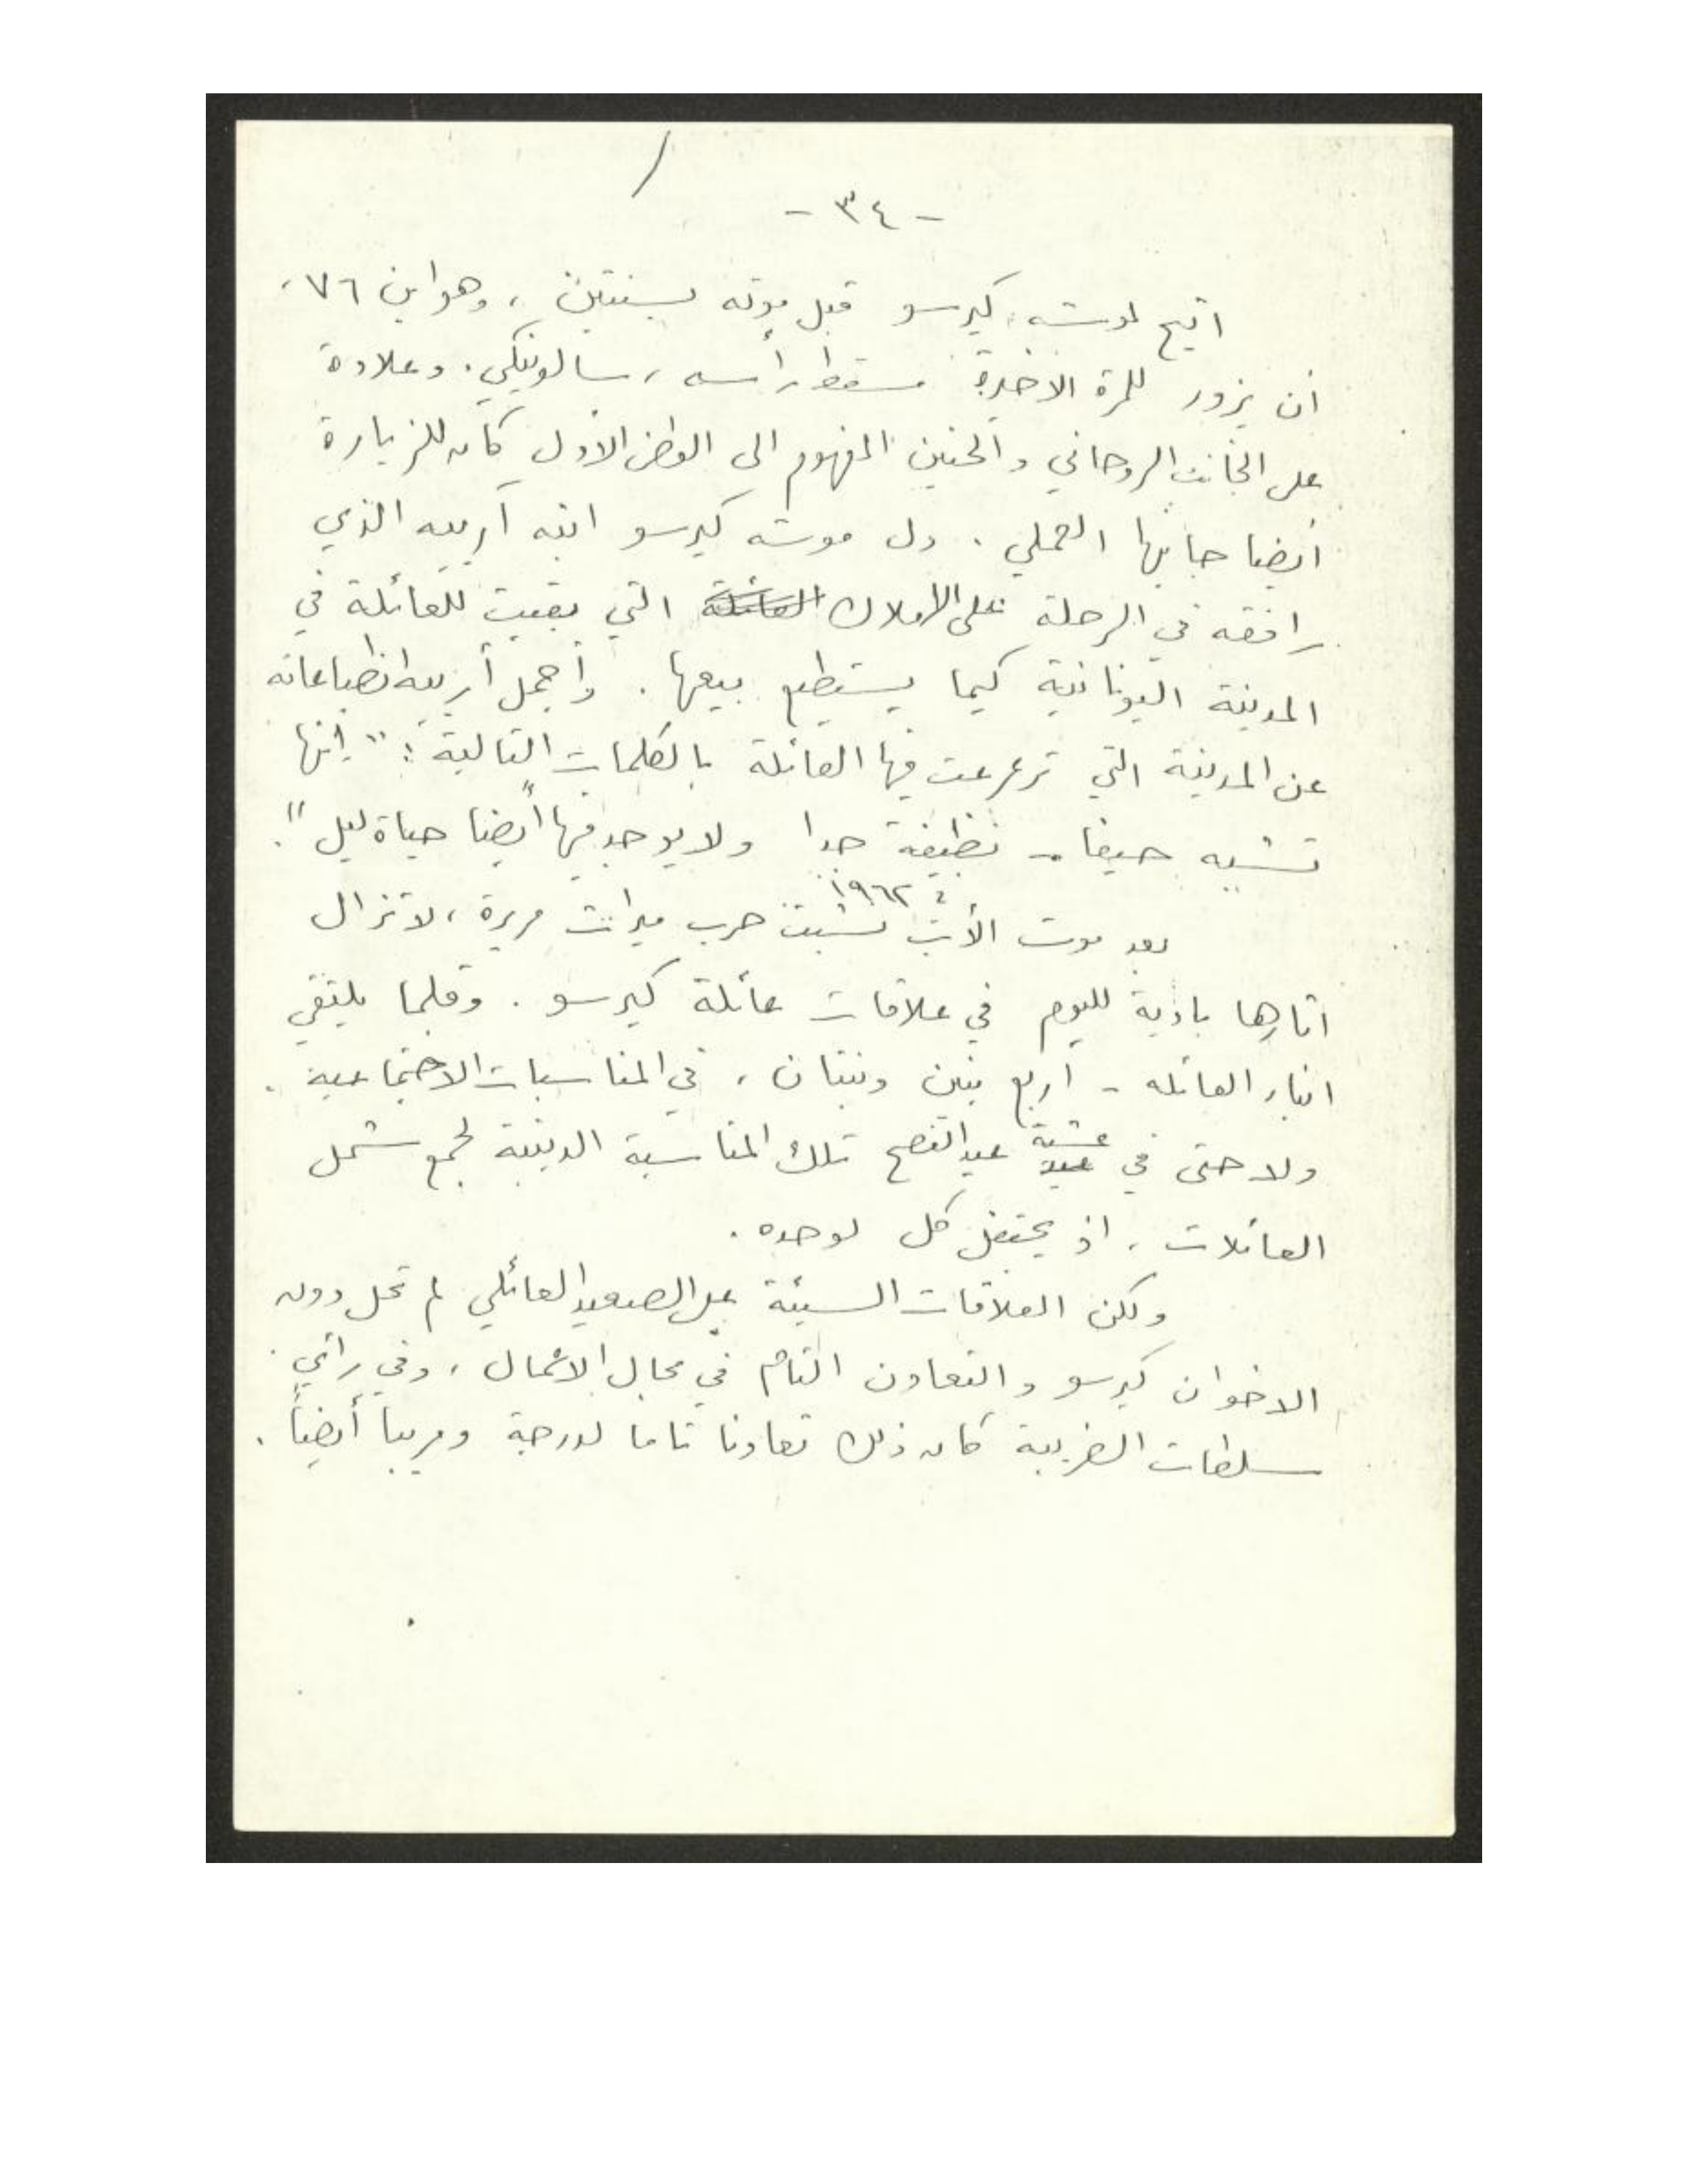 - ٣٤ -
اتيح لموشه كيرسو قبل موته بسنتين ، وهو ابن ٧٦ ،
أن يزور للمرة الاخيرة مسقط رأسه ، سالونيكي . وعلاوة
على الجانب الروحاني والحنين المفهوم الى الوطن الأول كان للزيارة
أيضا جانبها العملي . دل موشه كيرسو ابنه آرييه الذي
رافقه في الرحلة على الاملاك العائلة التي بقيت للعائلة في
المدينة اليونانية كيما يستطيع بيعها . وأجمل أرييه انطباعاته
عن المدينة التي ترعرعت فيها العائلة بالكلمات التالية : " إنها
تشبه حيفا - نظيفة جدا ولا يوجد فيها أيضا حياة ليل " .
١٩٦٢
بعد موت الأب نشبت حرب ميراث مريرة ، لا تزال
اثارها بادية لليوم في علاقات عائلة كيرسو . وقلما يلتقي
ابناء العائله - أربع بنين وبنتان ، في المناسبات الاجتماعية .
عشية
ولا حتى في عيد عيد الفصح تلك المناسبة الدينية لجمع شمل
العائلات ، اذ يحتفل كل لوحده .
ولكن العلاقات السيئة على الصعيد العائلي لم تحل دون
الاخوان كيرسو والتعاون التام في مجال الاعمال ، وفي رأي
سلطات الضريبة كان ذلك تعاونا تاما لدرجة ومريبا أيضاً .